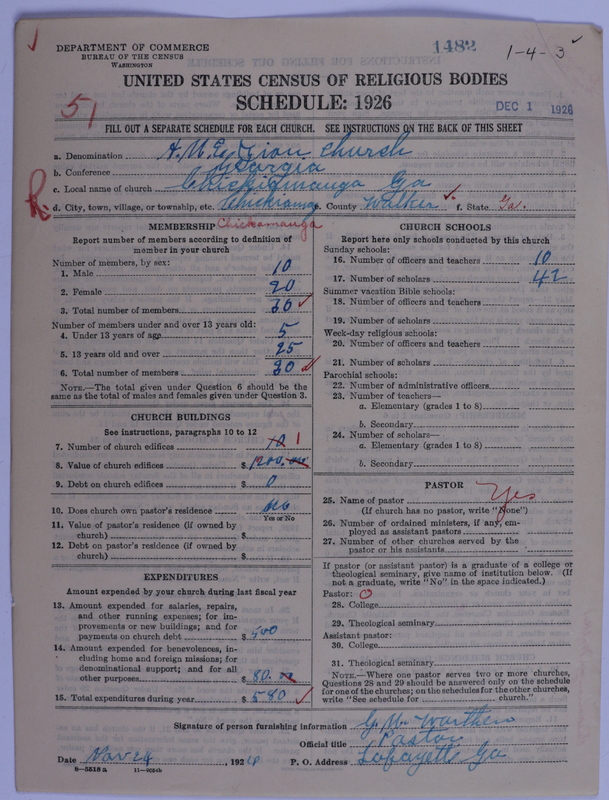 DEPARTMENT OF COMMERCE
BUREAU OF THE CENSUS
WASHINGTON
1482
1-4-3
UNITED STATES CENSUS OF RELIGIOUS BODIES
SCHEDULE: 1926
51
DEC 1 1926
FILL OUT A SEPARATE SCHEDULE FOR EACH CHURCH. SEE INSTRUCTIONS ON THE BACK OF THIS SHEET
a. Denomination A.M.E. Zion Church
b. Conference Georgia
c. Local name of church Chickamauga Ga
R d. City, town, village, or township, etc. Chickamauga County Walker f. State Ga.
MEMBERSHIP Chickamauga
Report number of members according to definition of
member in your church
Number of members, by sex:
1. Male 10
2. Female 20
3. Total number of members 30
Number of members under and over 13 years old:
4. Under 13 years of age 5
5. 13 years old and over 25
6. Total number of members 30
NOTE.—The total given under Question 6 should be the
same as the total of males and females given under Question 3.
CHURCH BUILDINGS
See instructions, paragraphs 10 to 12
7. Number of church edifices 1
8. Value of church edifices $ 1200.00
9. Debt on church edifices $ 0
10. Does church own pastor's residence
Yes or No
11. Value of pastor's residence (if owned by
church) $
12. Debt on pastor's residence (if owned by
church) $
EXPENDITURES
Amount expended by your church during last fiscal year
13. Amount expended for salaries, repairs,
and other running expenses; for im-
provements or new buildings; and for
payments on church debt $ 500
14. Amount expended for benevolences, in-
cluding home and foreign missions; for
denominational support; and for all
other purposes $ 80.00
15. Total expenditures during year $ 580
CHURCH SCHOOLS
Report here only schools conducted by this church
Sunday schools:
16. Number of officers and teachers 10
17. Number of scholars 42
Summer vacation Bible schools:
18. Number of officers and teachers
19. Number of scholars
Week-day religious schools:
20. Number of officers and teachers
21. Number of scholars
Parochial schools:
22. Number of administrative officers
23. Number of teachers—
a. Elementary (grades 1 to 8)
b. Secondary
24. Number of scholars—
a. Elementary (grades 1 to 8)
b. Secondary
PASTOR
25. Name of pastor Yes
(If church has no pastor, write "None")
26. Number of ordained ministers, if any, em-
ployed as assistant pastors
27. Number of other churches served by the
pastor or his assistants
If pastor (or assistant pastor) is a graduate of a college or
theological seminary, give name of institution below. (If
not a graduate, write "No" in the space indicated.)
Pastor: O
28. College
29. Theological seminary
Assistant pastor:
30. College
31. Theological seminary
NOTE.—Where one pastor serves two or more churches,
Questions 28 and 29 should be answered only on the schedule
for one of the churches; on the schedules for the other churches,
write "See schedule for church."
Signature of person furnishing information G. W. Worthen
Official title Pastor
Date Nov 24, 192 P. O. Address Lafayette Ga
8-5518 a 11-9024b